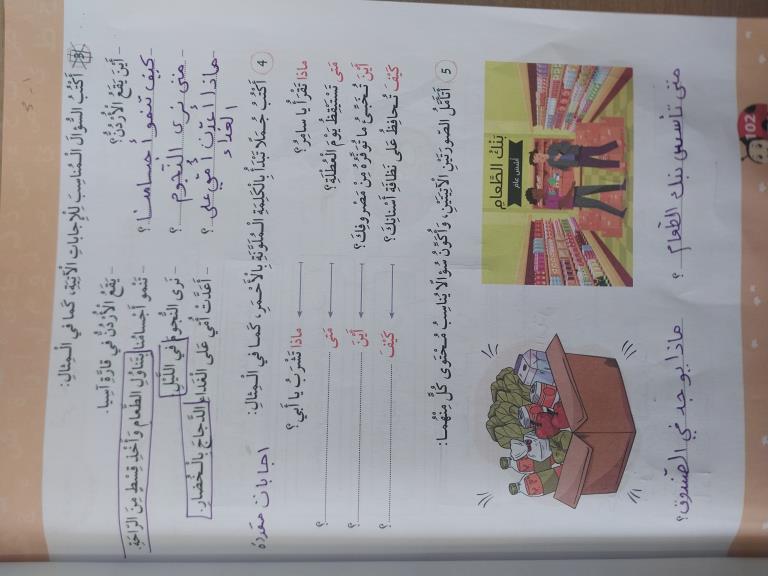 3 أَكْتُبُ السُّؤَالَ الْمُنَاسِبَ لِلْإِجَابَاتِ الْآتِيَةِ، كَمَا فِي الْمِثَالِ:
- أَيْنَ يَقَعُ الْأُرْدُنُّ؟ - يَقَعُ الْأُرْدُنُّ فِي قَارَّةِ آسِيا.
- كيف تنمو أجسامنا؟ - تَنْمو أَجْسَامُنَا بِتَنَاوُلِ الطَّعَامِ وَأَخْذِ قِسْطٍ مِنَ الرَّاحَةِ.
- متى نرى النجوم؟ - نَرَى النُّجُومَ فِي اللَّيْلِ.
- ماذا أعدّت أمي على الغداء؟ - أَعَدَّتْ أُمِّي عَلَى الْغَدَاءِ الدَّجَاجَ بِالْخُضَارِ.
4 أَكْتُبُ جُمَلًا تَبْدَأُ بِالْكَلِمَةِ الْمُلَوَّنَةِ بِالْأَحْمَرِ، كَمَا فِي الْمِثَالِ:
اجابات متعدده
ماذا تَقْرَأُ يا سامِرُ؟ ماذا تَشْرَبُ يا أَبي؟
مَتى تَسْتَيْقِظُ يَوْمَ الْعُطْلَةِ؟ مَتى ؟
أَيْنَ تُخَبِّئُ ما تُوَفِّرُهُ مِنْ مَصْروفِكَ؟ أَيْنَ ؟
كَيْفَ تُحافِظُ عَلى نَظافَةِ أَسْنانِكَ؟ كَيْفَ ؟
5 أَتَأَمَّلُ الصّورَتَيْنِ الْآتِيَتَيْنِ، وَأُكَوِّنُ سُؤَالًا يُناسِبُ مُحْتَوى كُلٍّ مِنْهُما:
بَنْكُ الطَّعامِ
متى تأسس بنك الطعام؟
ماذا يوجد في الصندوق؟
102